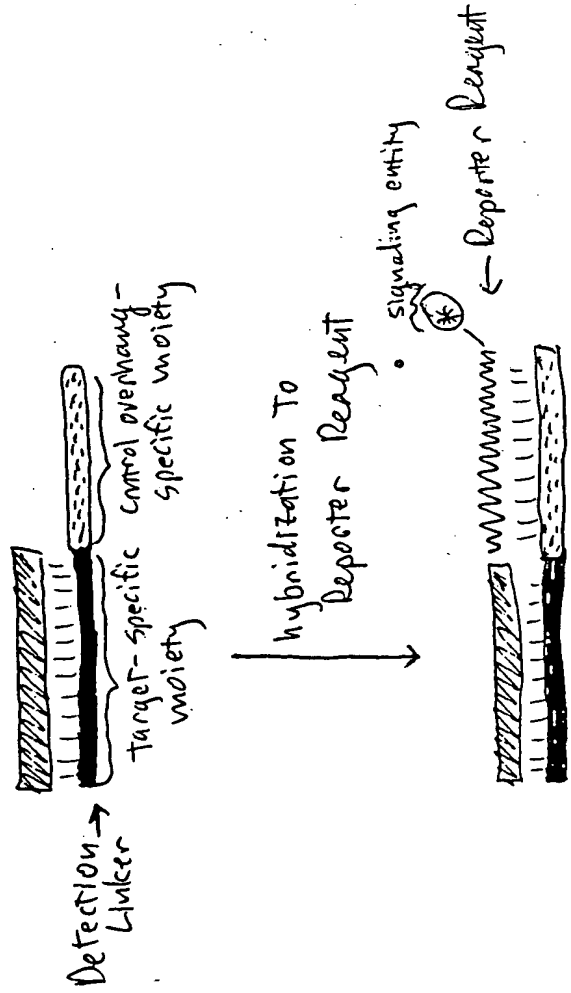 Detection
Linker
Target-specific
moiety
control overhang-
specific moiety
hybridization To
Reporter Reagent
signaling entity
*
Reporter Reagent